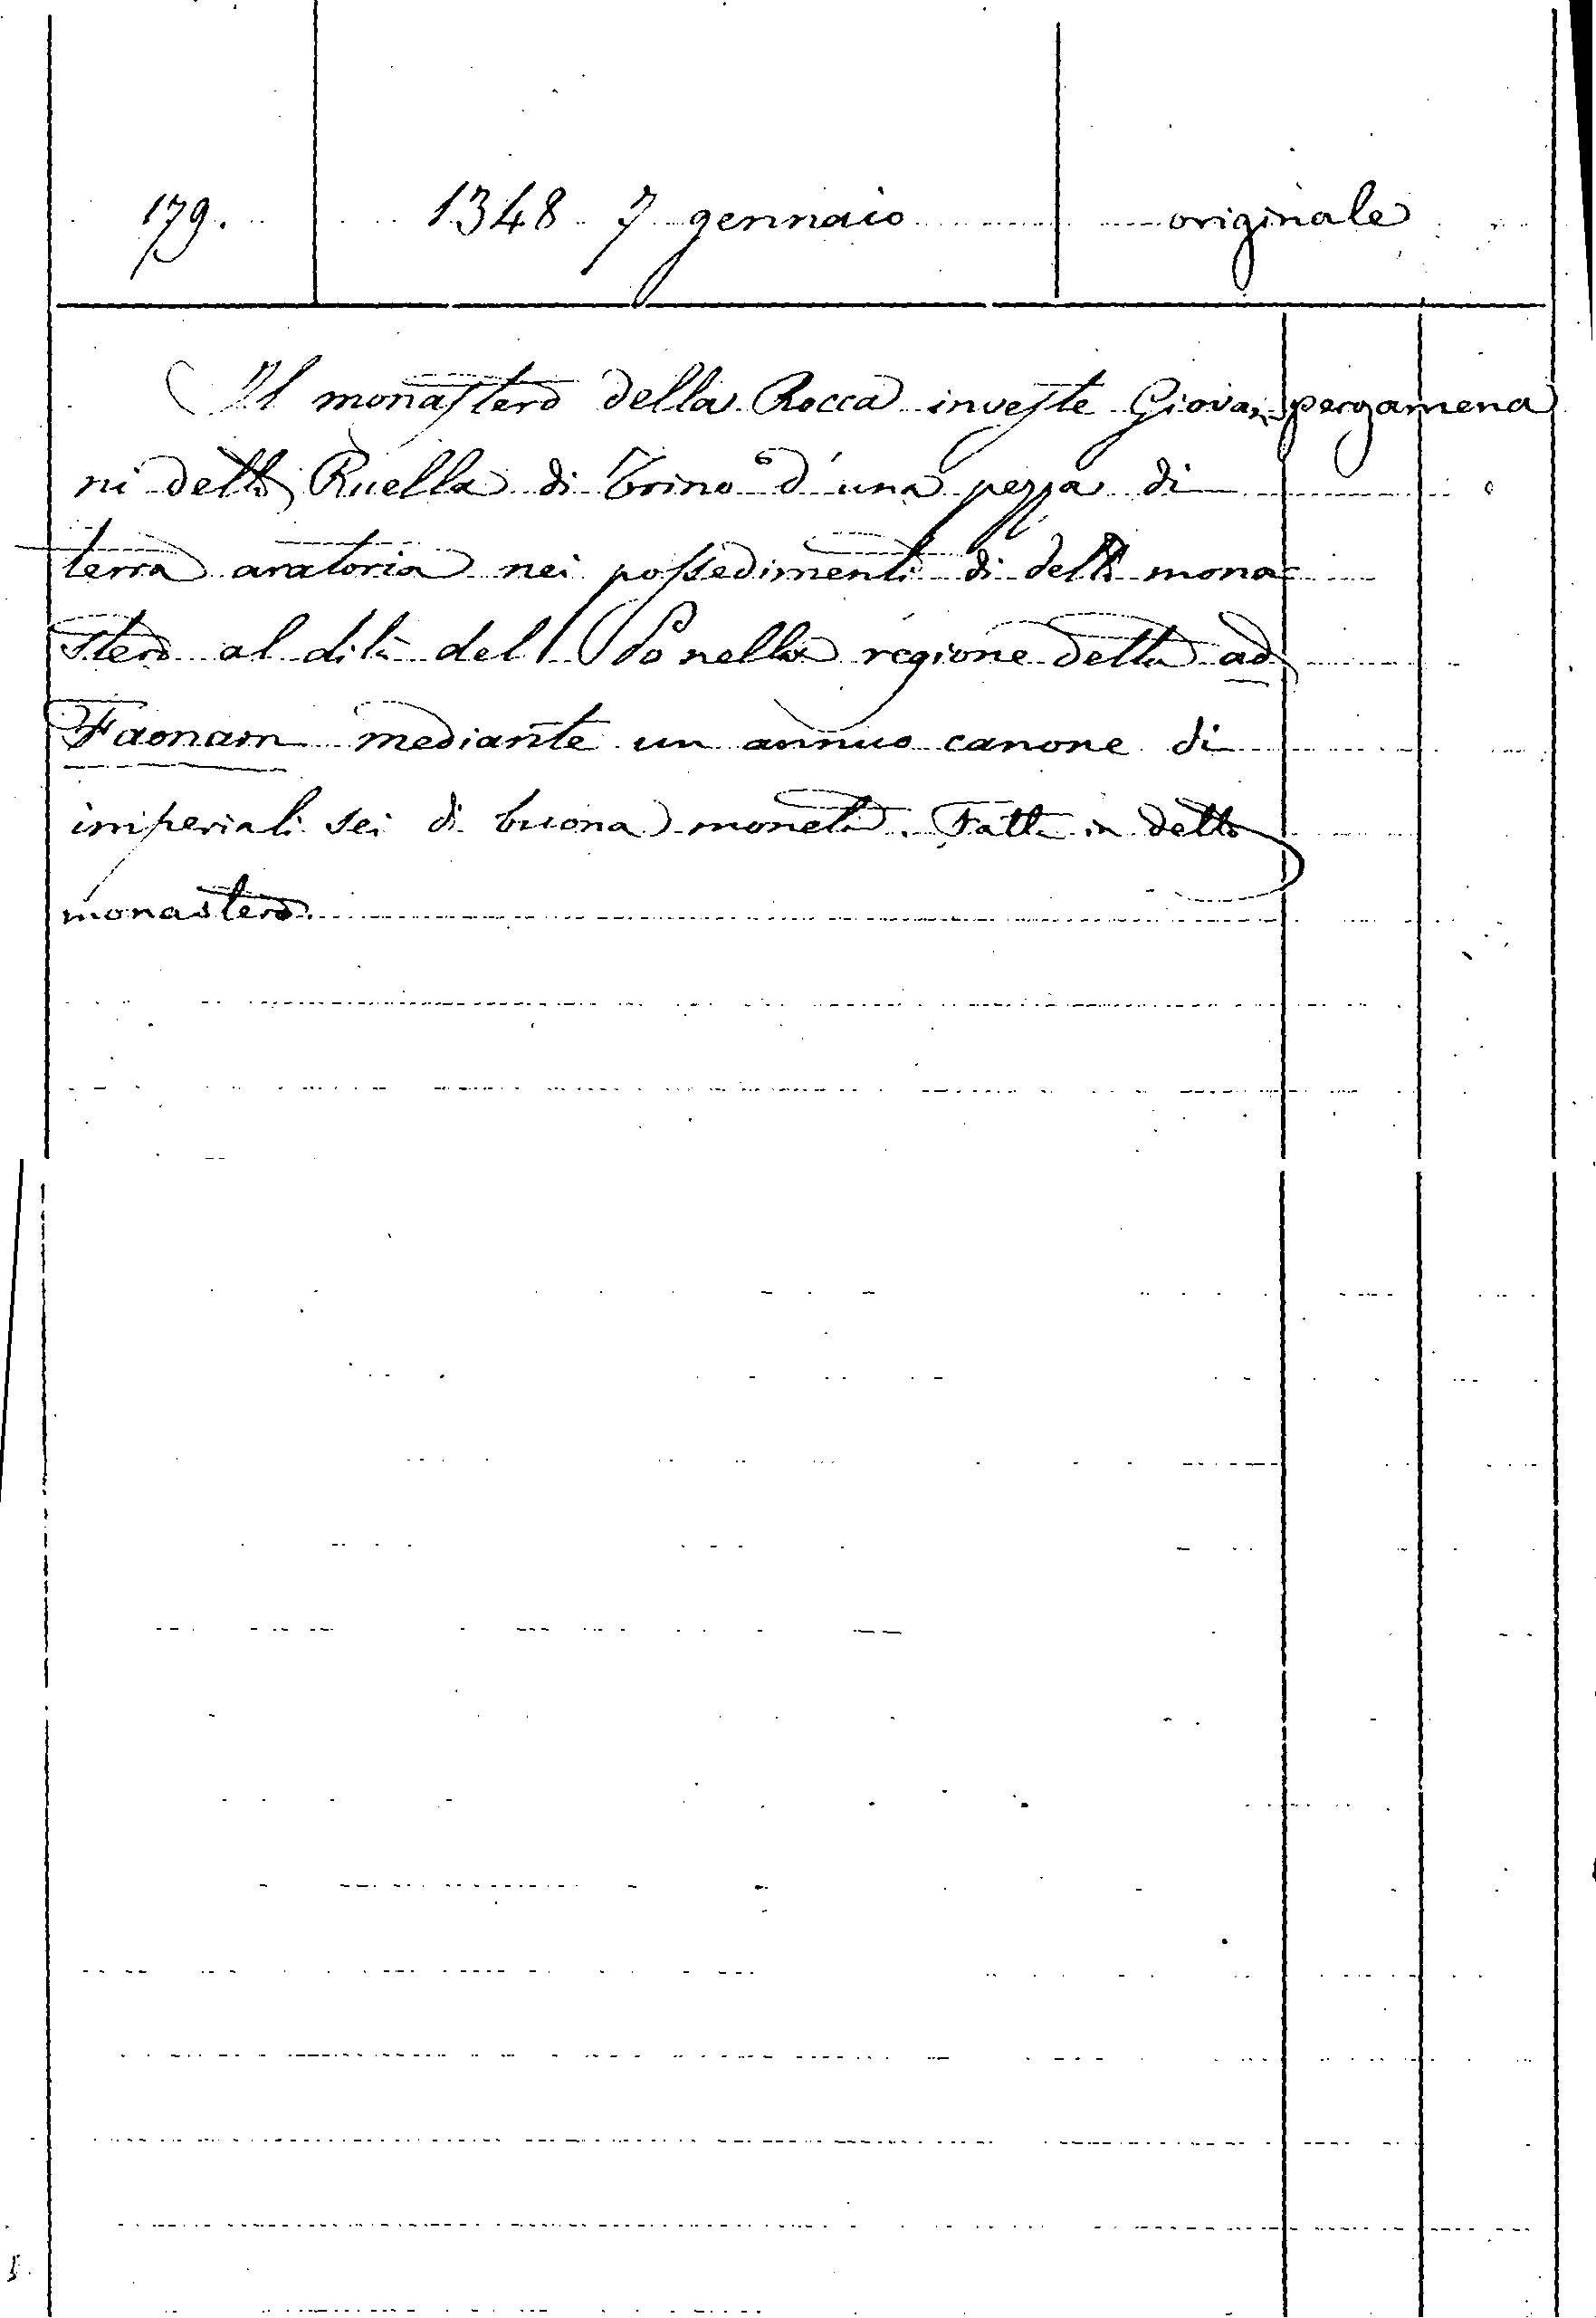 179. 1348 7 gennaio originale
Il monastero della Rocca investe Giovan pergamena
ni detto Ruella di Trino d'una pezza di
terra aratoria nei possedimenti di detto mona-
stero al di là del Po nella regione detta ad
Faonam mediante un annuo canone di
imperiali sei di buona moneta. Fatta in detto
monastero.